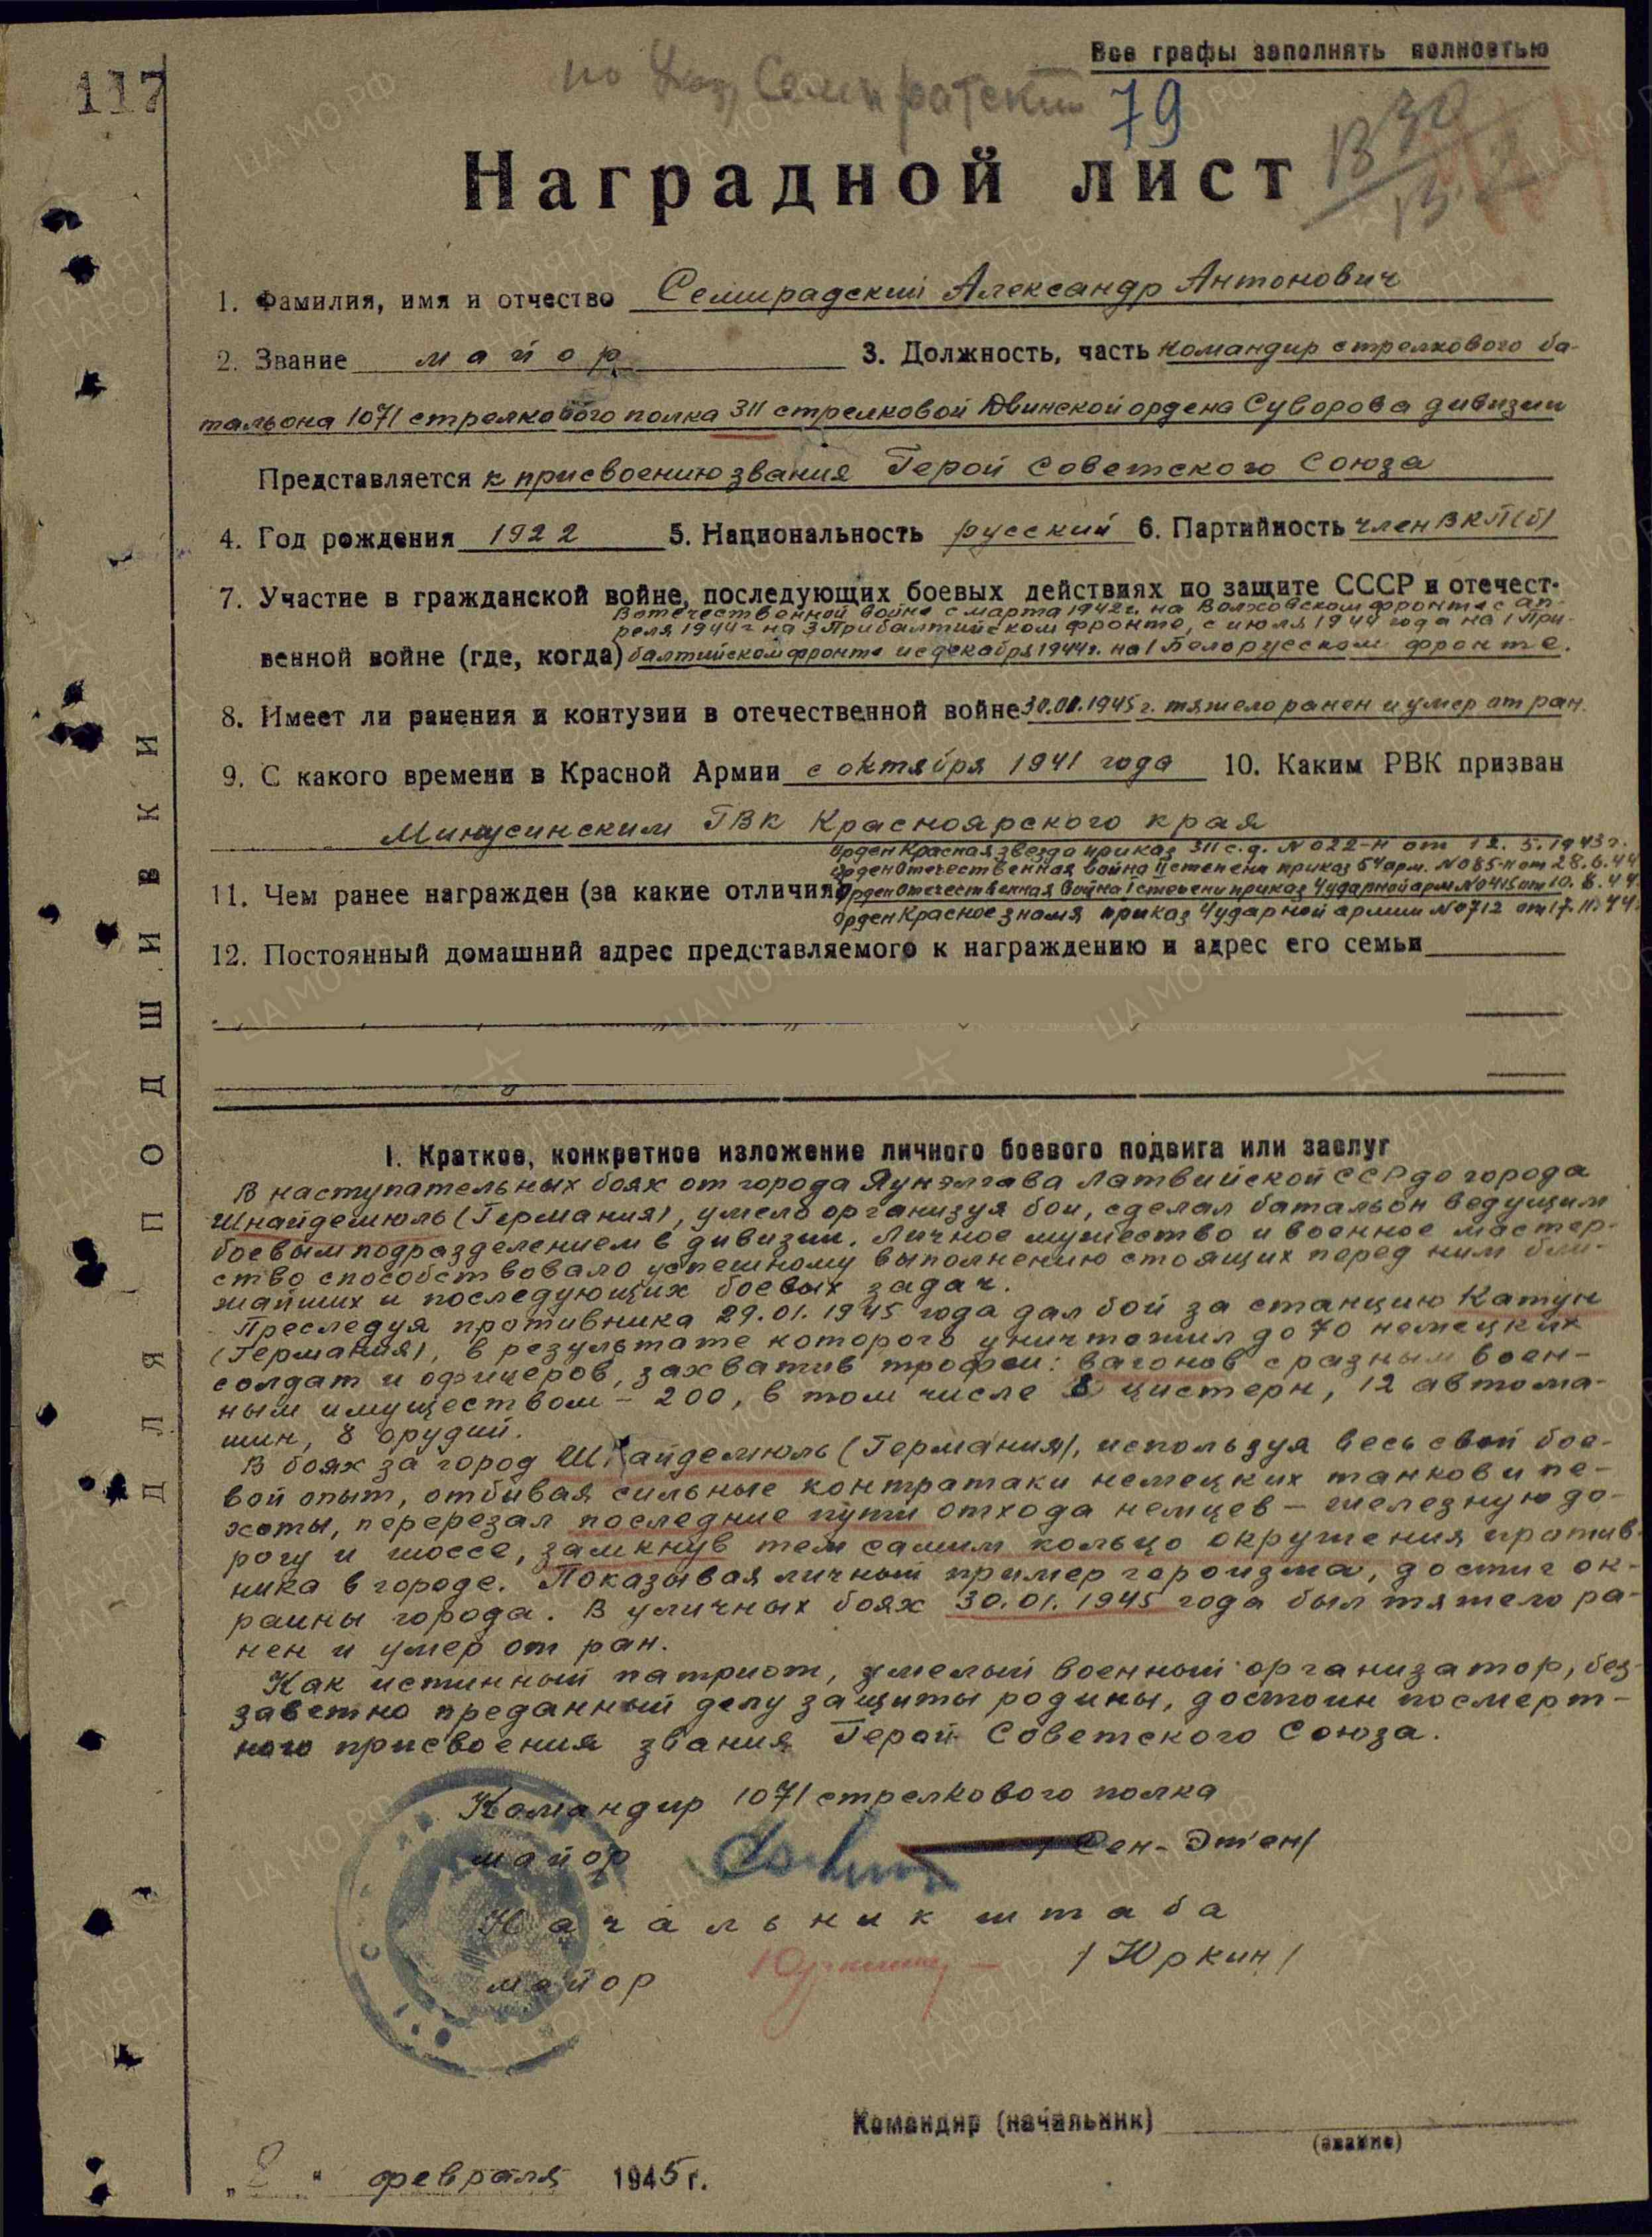 Все графы заполнять полностью
117
79
Наградной лист
1. Фамилия, имя и отчество Семирадский Александр Антонович
2. Звание майор 3. Должность, часть командир стрелкового ба-
тальона 1071 стрелкового полка 311 стрелковой Двинской ордена Суворова дивизии
Представляется к присвоению звания Герой Советского Союза
4. Год рождения 1922 5. Национальность русский 6. Партийность член ВКП(б)
7. Участие в гражданской войне, последующих боевых действиях по защите СССР и отечест-
В отечественной войне с марта 1942 г. на Волховском фронте с ап-
реля 1944 г на 3 Прибалтийском фронте, с июля 1944 года на 1 При-
венной войне (где, когда) балтийском фронте и с декабря 1944 г. на 1 Белорусском фронте.
8. Имеет ли ранения и контузии в отечественной войне 30.01.1945 г. тяжело ранен и умер от ран.
9. С какого времени в Красной Армии с октября 1941 года 10. Каким РВК призван
Минусинским ГВК Красноярского края
орден Красная звезда приказ 311 с.д. № 022-н от 12.5.1943 г.
орден Отечественная война II степени приказ 54 арм. № 085-н от 28.6.44
11. Чем ранее награжден (за какие отличия) орден Отечественная война I степени приказ 4 ударной арм № 0415 от 10.8.44.
орден Красное знамя приказ 4 ударной армии № 0712 от 17.11.44.
12. Постоянный домашний адрес представляемого к награждению и адрес его семьи
I. Краткое, конкретное изложение личного боевого подвига или заслуг
В наступательных боях от города Яунелгава Латвийской ССР до города
Шнайдемюль (Германия), умело организуя бои, сделал батальон ведущим
боевым подразделением в дивизии. Личное мужество и военное мастер-
ство способствовало успешному выполнению стоящих перед ним бли-
жайших и последующих боевых задач.
Преследуя противника 29.01.1945 года дал бой за станцию Катун
(Германия), в результате которого уничтожил до 70 немецких
солдат и офицеров, захватив трофеи: вагонов с разным воен-
ным имуществом – 200, в том числе 8 цистерн, 12 автома-
шин, 8 орудий.
В боях за город Шнайдемюль (Германия), используя весь свой бое-
вой опыт, отбивая сильные контратаки немецких танков и пе-
хоты, перерезал последние пути отхода немцев – железную до-
рогу и шоссе, замкнув тем самим кольцо окружения против-
ника в городе. Показывая личный пример героизма, достиг ок-
раины города. В уличных боях 30.01.1945 года был тяжело ра-
нен и умер от ран.
Как истинный патриот, умелый военный организатор, без-
заветно преданный делу защиты родины, достоин посмерт-
ного присвоения звания Герой Советского Союза.
Командир 1071 стрелкового полка
майор /Сен-Этен/
Начальник штаба
майор /Юркин/
Командир (начальник)
(звание)
„2“ февраля 1945 г.
ДЛЯ ПОДШИВКИ